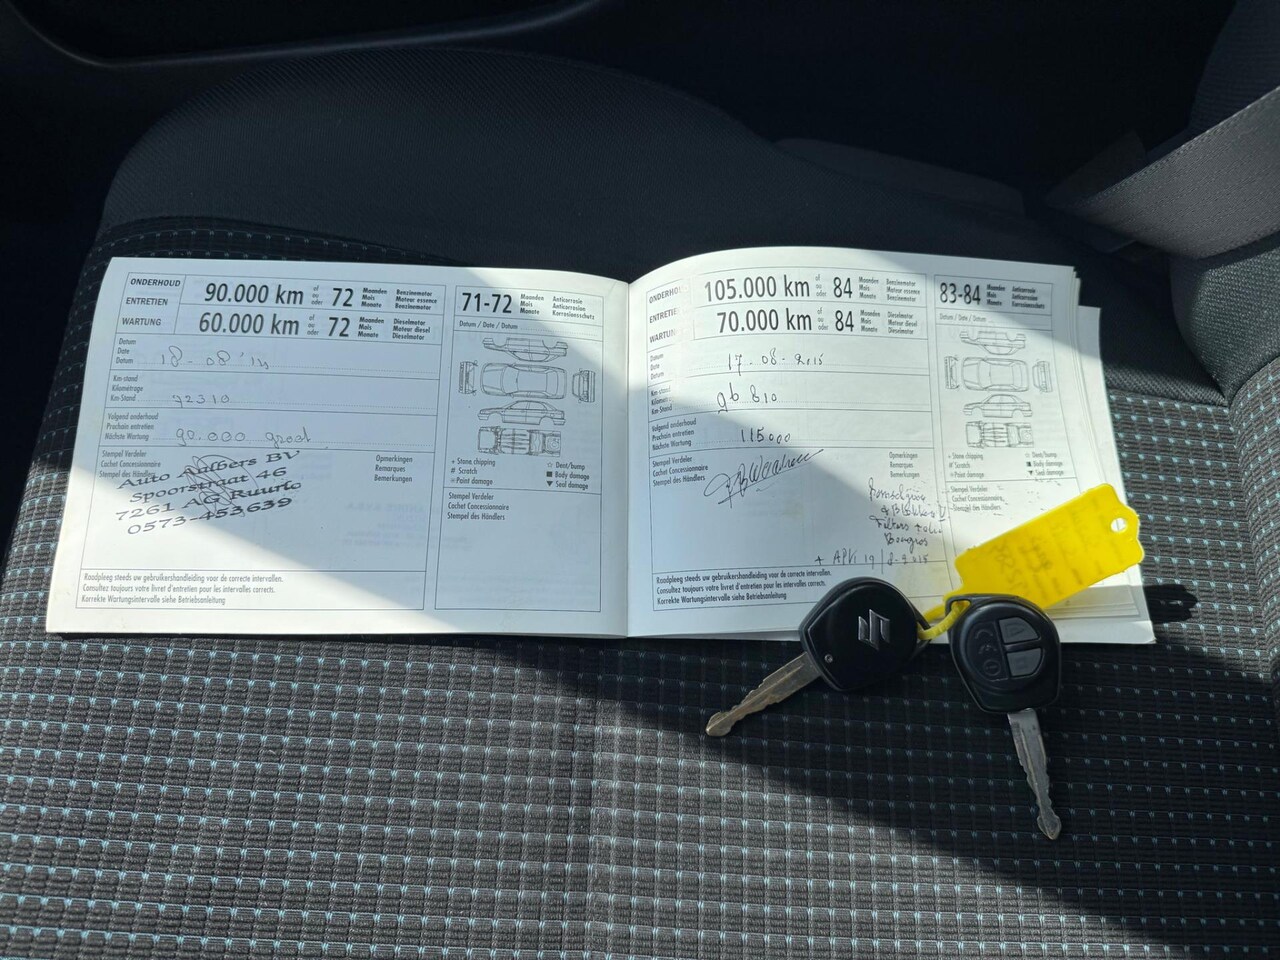 ONDERHOUD
ENTRETIEN
WARTUNG
90.000 km of ou oder 72 Maanden Mois Monate Benzinemotor Moteur essence Benzinmotor
60.000 km of ou oder 72 Maanden Mois Monate Dieselmotor Moteur diesel Dieselmotor
Datum
Date
Datum
18-08'14
Km-stand
Kilométrage
Km-Stand
72310
Volgend onderhoud:
Prochain entretien
Nächste Wartung
90.000 groot
Stempel Verdeler
Cachet Concessionnaire
Stempel des Händlers
Opmerkingen
Remarques
Bemerkungen
Auto Anbers BV
Spoorstraat 46
7261 AG Ruurlo
0573-453639
Raadpleeg steeds uw gebruikershandleiding voor de correcte intervallen.
Consultez toujours votre livret d'entretien pour les intervalles corrects.
Korrekte Wartungsintervalle siehe Betriebsanleitung
71-72 Maanden Mois Monate Anticorrosie Anticorrosion Korrosionsschutz
Datum / Date / Datum
+ Stone chipping
# Scratch
Paint damage
☆ Dent/bump
■ Body damage
▼ Seal damage
Stempel Verdeler
Cachet Concessionnaire
Stempel des Händlers
ONDERHOU
ENTRETIE
WARTUN
105.000 km of ou oder 84 Maanden Mois Monate Benzinemotor Moteur essence Benzinmotor
70.000 km of ou oder 84 Maanden Mois Monate Dieselmotor Moteur diesel Dieselmotor
Datum
Date
Datum
17-08-2015
Km-stand
Kilomé
Km-Stand
96 810
Volgend onderhoud
Prochain entretien
Nächste Wartung
115000
Stempel Verdeler
Cachet Concessionnaire
Stempel des Händlers
Opmerkingen
Remarques
Bemerkungen
Filters + olie
Bougies
+ APK 19/8-2015
Raadpleeg steeds uw gebruikershandleiding voor de correcte intervallen.
Consultez toujours votre livret d'entretien pour les intervalles corrects.
Korrekte Wartungsintervalle siehe Betriebsanleitung
83-84 Maanden Mois Monate Anticorrosie Anticorrosion Korrosionsschutz
Datum / Date / Datum
+ Stone chipping
# Scratch
Paint damage
☆ Dent/bump
■ Body damage
▼ Seal damage
Stempel Verdeler
Cachet Concessionnaire
Stempel des Händlers